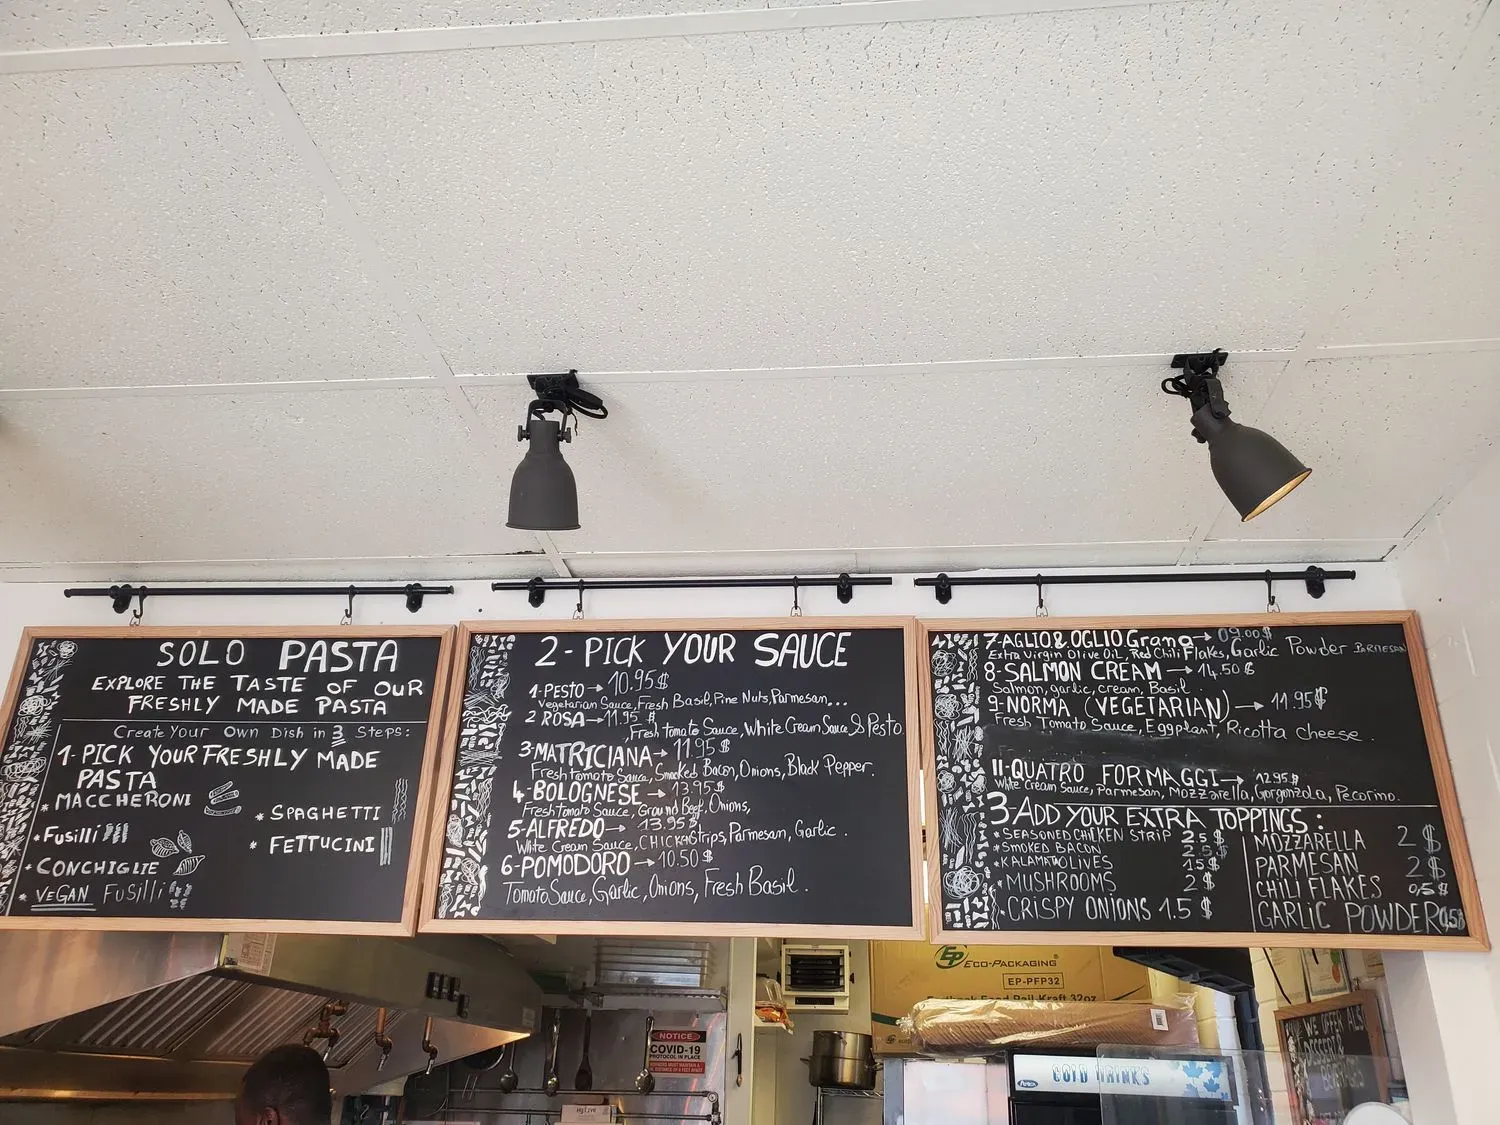 SOLO PASTA
EXPLORE THE TASTE OF OUR
FRESHLY MADE PASTA
Create Your Own Dish in 3 Steps:
1-PICK YOUR FRESHLY MADE
PASTA
* MACCHERONI
* Fusilli
* CONCHIGLIE
* VEGAN Fusilli
* SPAGHETTI
* FETTUCINI
2-PICK YOUR SAUCE
1-PESTO → 10.95$
Vegetarian Sauce, Fresh Basil, Pine Nuts, Parmesan,...
2 ROSA → 11.95 $
Fresh tomato Sauce, White Cream Sauce & Pesto
3-MATRICIANA → 11.95 $
Fresh tomato Sauce, Smoked Bacon, Onions, Black Pepper.
4-BOLOGNESE → 13.95$
Fresh tomato Sauce, Ground Beef, Onions,
5-ALFREDO → 13.95$
White Cream Sauce, Strips, Parmesan, Garlic.
6-POMODORO → 10.50 $
Tomato Sauce, Garlic, Onions, Fresh Basil.
7-AGLIO & OGLIO Grana → 09.00$
Extra Virgin Olive Oil, Red Chili Flakes, Garlic Powder PARMESAN
8-SALMON CREAM → 14.50 $
Salmon, garlic, cream, Basil.
9-NORMA (VEGETARIAN) → 11.95$
Fresh Tomato Sauce, Eggplant, Ricotta cheese.
11-QUATRO FORMAGGI → 12.95 $
White Cream Sauce, Parmesan, Mozzarella, Gorgonzola, Pecorino.
3-ADD YOUR EXTRA TOPPINGS:
* SEASONED CHICKEN STRIP 2.5 $
* SMOKED BACON 2.5 $
* KALAMATA OLIVES 1.5 $
* MUSHROOMS 2 $
* CRISPY ONIONS 1.5 $
MOZZARELLA 2 $
PARMESAN 2 $
CHILI FLAKES 0,5 $
GARLIC POWDER 0,5$
EP ECO-PACKAGING
EP-PFP32
Kraft 32oz
NOTICE
COVID-19
PROTOCOL IN PLACE
COLD DRINKS
WE OFFER ALSO
DESSERT &
BEVERAGES